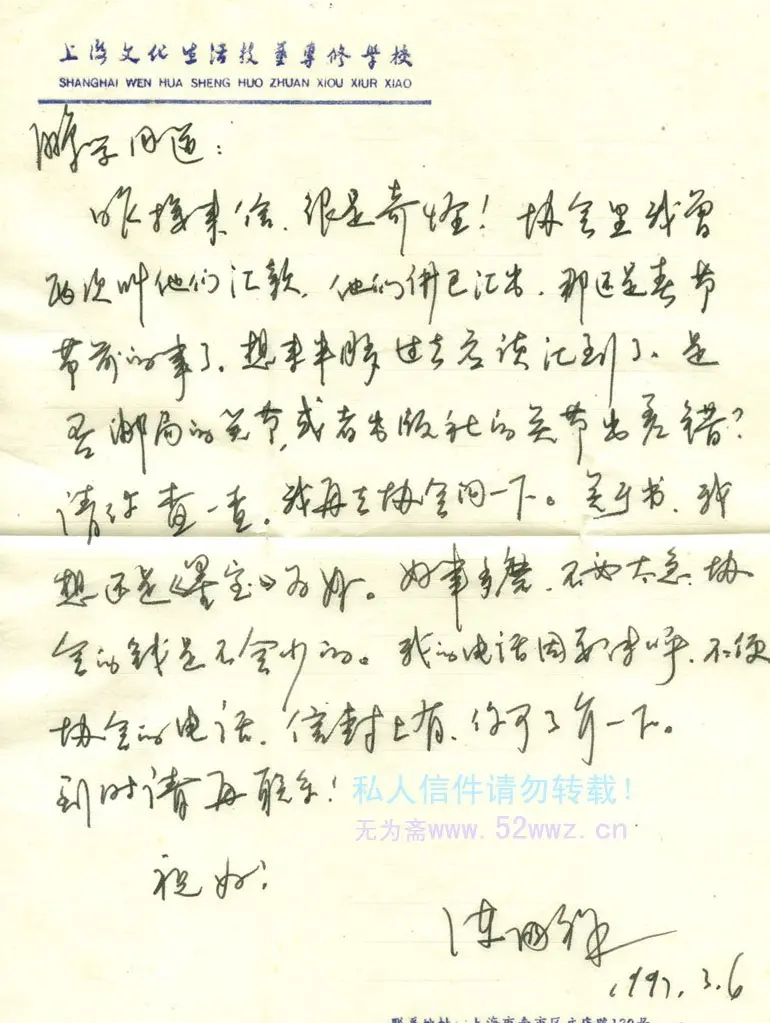 上海文化生活技艺專修学校
SHANGHAI WEN HUA SHENG HUO ZHUAN XIOU XIUR XIAO
学同道：
昨接来信，很是奇怪！协会里我曾
两次叫他们汇款，他们併已汇出，那还是春节
节前的事了，想来半月过去应该汇到了，是
否邮局的关节，或者出版社的关节出差错？
请你查一查。我再去协会问一下。关于书，我
想还是《墨宝》为好。好事多磨，不要太急，协
会的钱是不会少的。我的电话因要传呼，不便
协会的电话，信封上有，你可了解一下。
到时请再联系！
私人信件请勿转载！
无为斋www.52wwz.cn
祝好！
陈国祥
1997.3.6